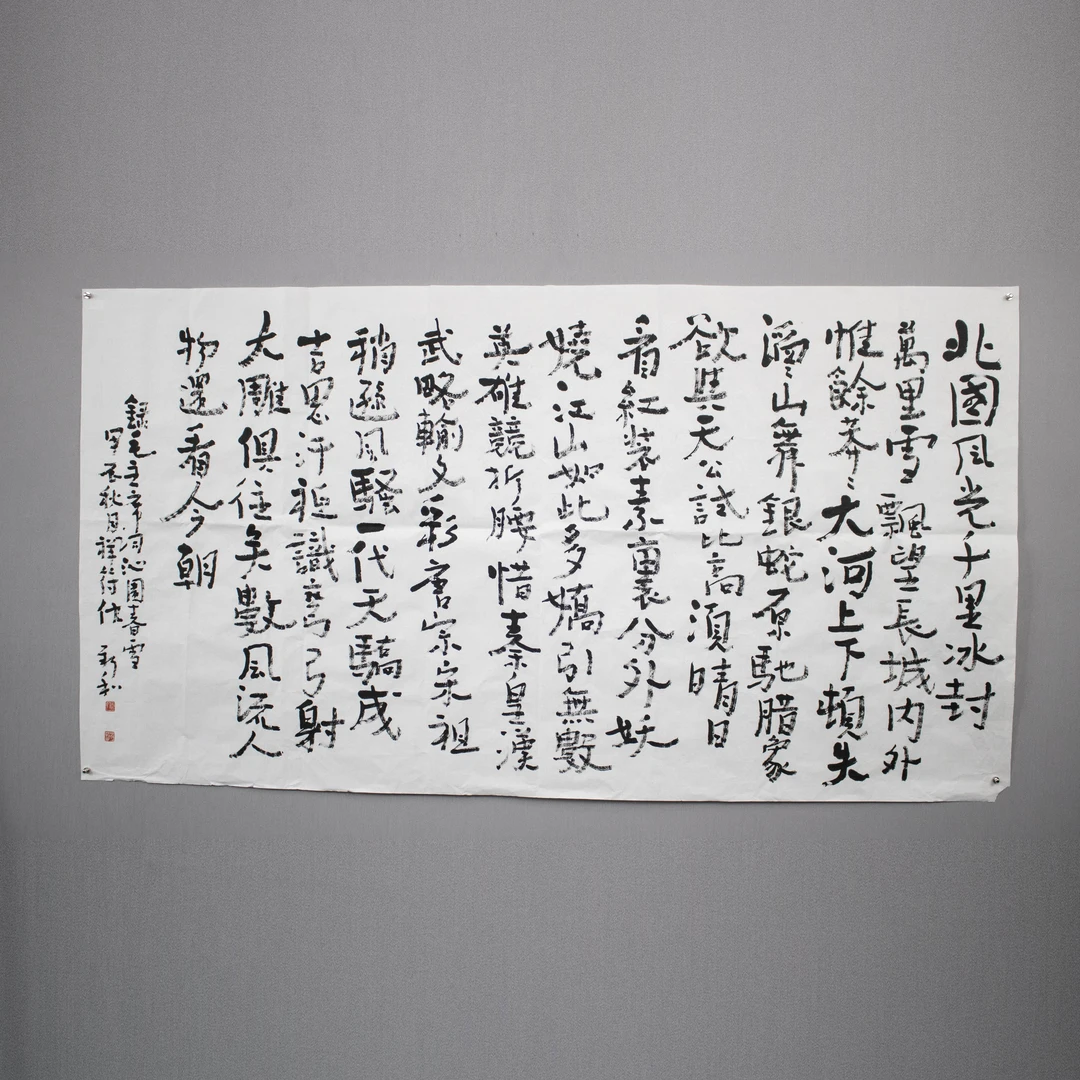 北國風光千里冰封
萬里雪飄望長城内外
惟餘莽〻大河上下頓失
滔〻山舞銀蛇原馳腊象
欲與天公試比高須晴日
看紅装素裹分外妖
嬈江山如此多嬌引無數
英雄競折腰惜秦皇漢
武略輸文彩唐宗宋祖
稍遜風騷一代天驕成
吉思汗祗識彎弓射
大雕俱往矣數風流人
物還看今朝
錄毛主席詞沁園春雪
秋月